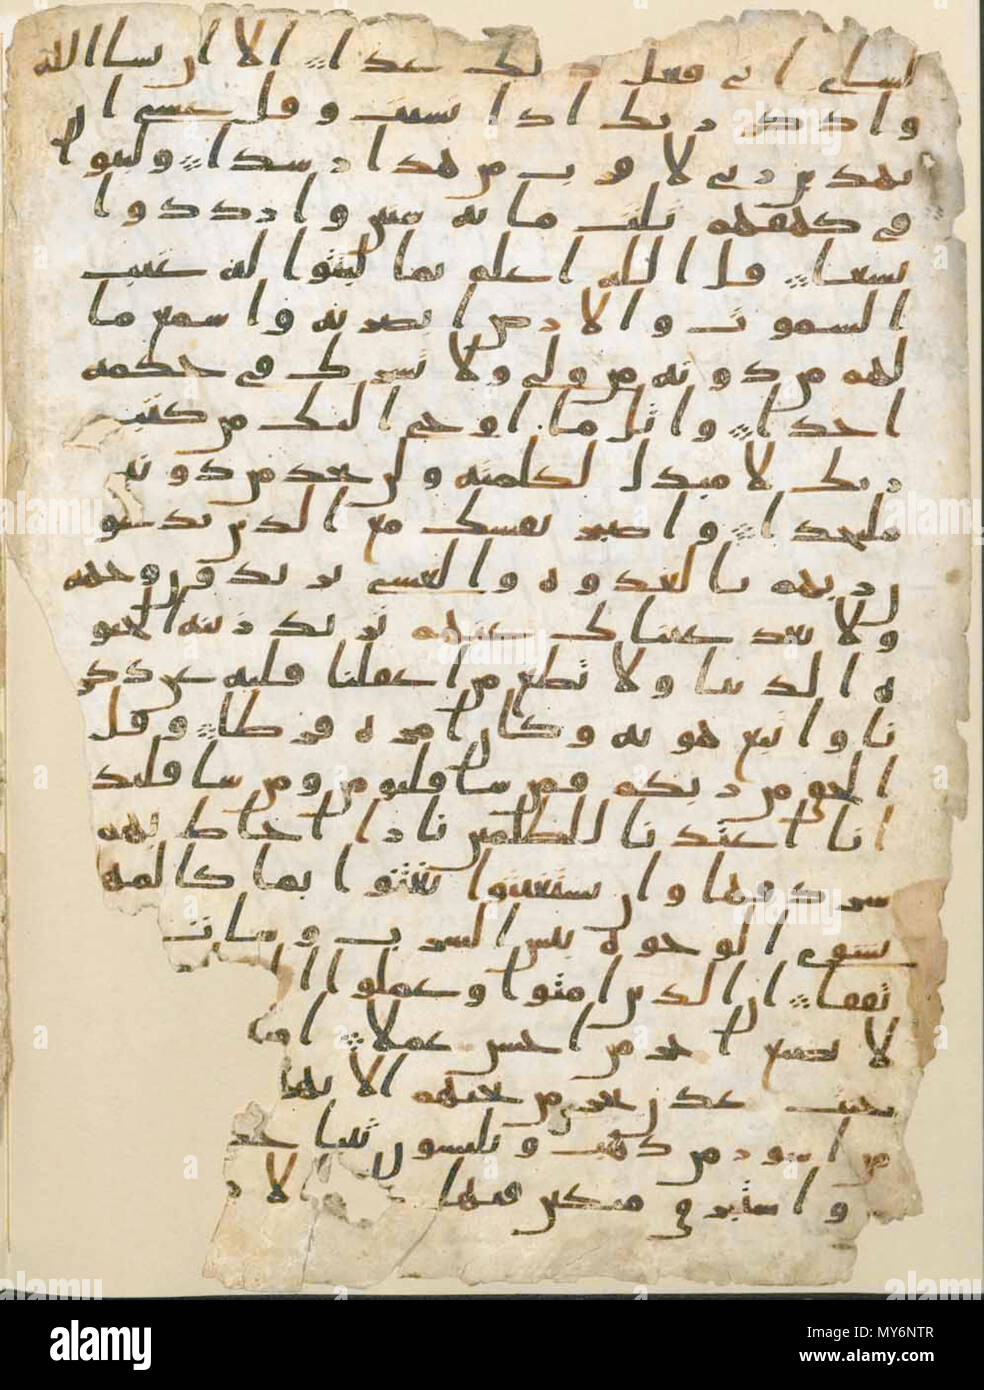 لشاى انى فعل ذلك غدا الا ان يشا الله
واذكر ربك اذا نسيت وقل عسى ان
يهدين ربى لاقرب من هذا رشدا ولبثوا
فى كهفهم ثلث مايه سنين وازددوا
تسعا قل الله اعلم بما لبثوا له غيب
السموت والارض ابصر به واسمع ما
لهم من دونه من ولى ولا يشرك فى حكمه
احدا واتل ما اوحى اليك من كتب
ربك لا مبدل لكلمته ولن تجد من دونه
ملتحدا واصبر نفسك مع الذين يدعو
ن ربهم بالغدوه والعشى يريدون وجهه
ولا تعد عيناك عنهم تريد زينه الحيو
ه الدنيا ولا تطع من اغفلنا قلبه عن ذكر
نا واتبع هويه وكان امره فرطا وقل
الحق من ربكم فمن شا فليومن ومن شا فليك
انا اعتدنا للظلمين نارا احاط بهم
سردقها وان يستغيثوا يغثوا بما كالمه
يشوى الوجوه بئس الشرب وسات
تفقا ان الذين امنوا وعملوا ا
لا نضيع اجر من احسن عملا
جنت عدن تجرى من تحتهم الانها
من اسور من ذهب ويلبسون ثيابا
واستبرق متكين فيها
alamy
Image ID: MY6NTR
www.alamy.com